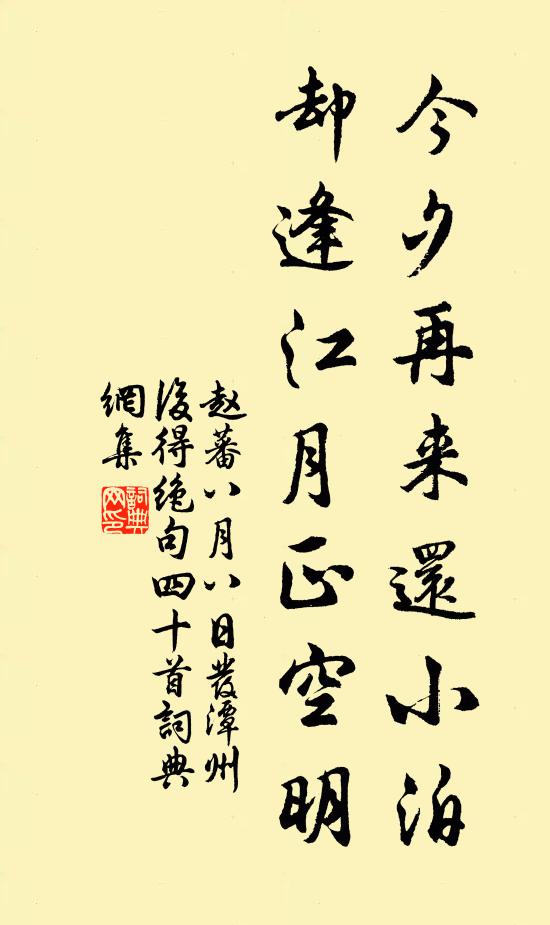 今夕再来還小泊
却逢江月正空明
赵蕃八月八日發潭州
後得绝句四十首詞典
網集
詞典
网印